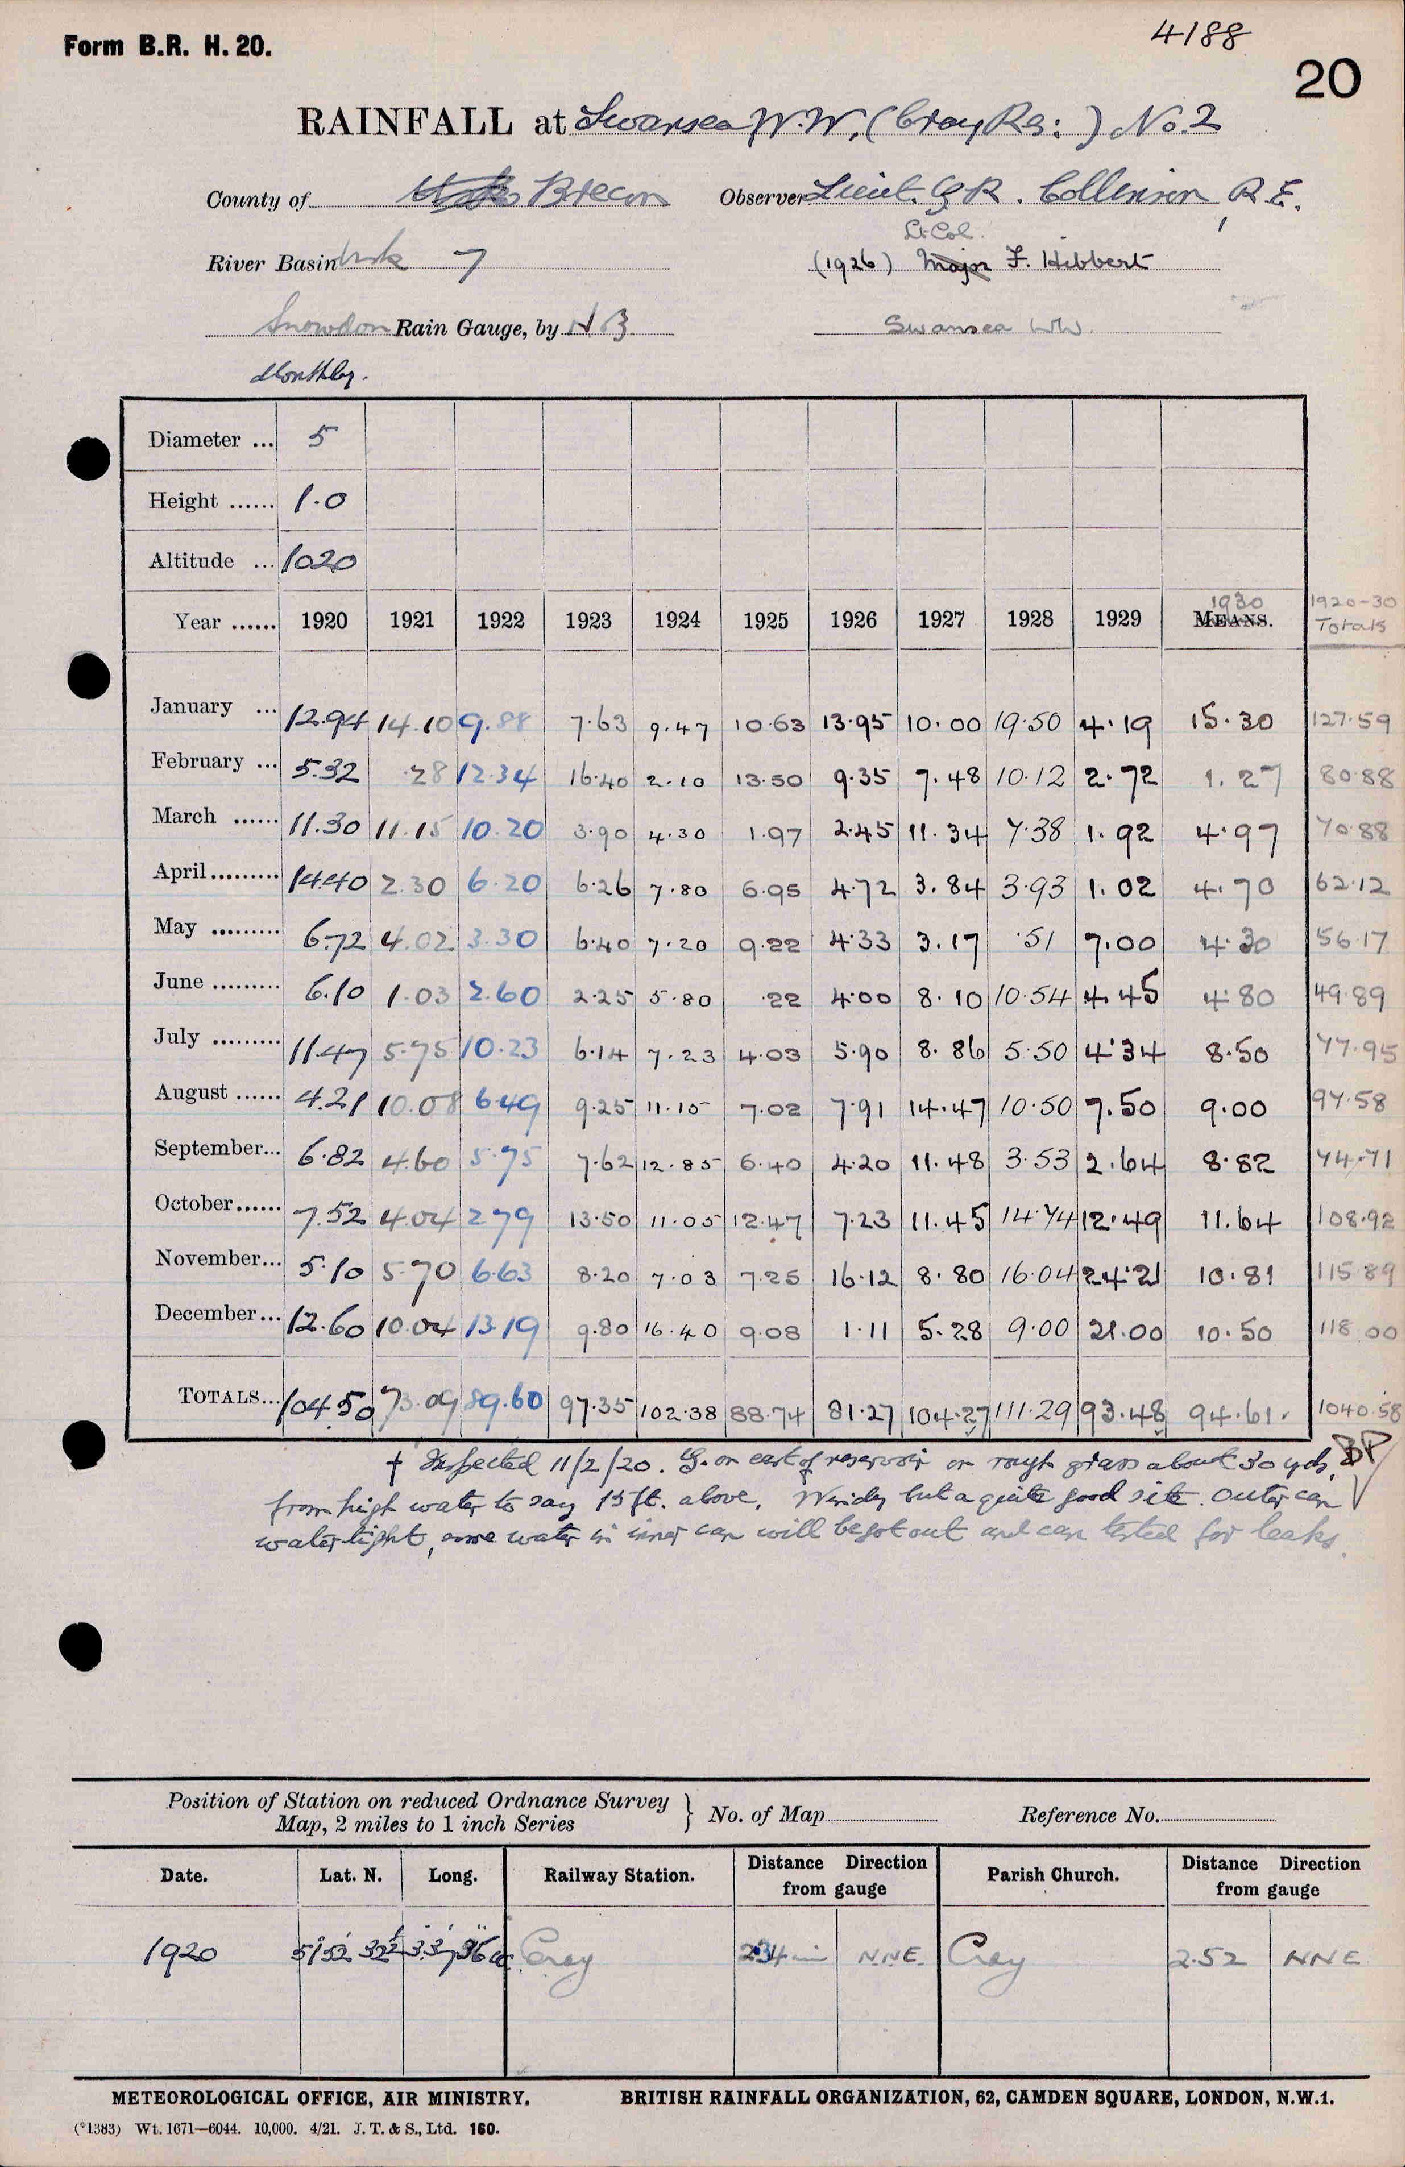 Form B.R. H. 20.
4188
20
RAINFALL at Swansea W.W. (Cray Res:) No. 2
County of Brecon Observer Lieut. G. R. Collinson, R.E.
Lt Col.
River Basin Usk 7 (1926) Major F. Hibbert
Snowdon Rain Gauge, by NB Swansea WW.
Monthly.
Diameter ... 5
Height ...... 1.0
Altitude ... 1020
Year ...... 1920 1921 1922 1923 1924 1925 1926 1927 1928 1929 1930 MEANS. 1920-30 Totals
January ... 12.94 14.10 9.88 7.63 9.47 10.63 13.95 10.00 19.50 4.19 15.30 127.59
February ... 5.32 .28 12.34 16.40 2.10 13.50 9.35 7.48 10.12 2.72 1.27 80.88
March ...... 11.30 11.15 10.20 3.90 4.30 1.97 2.45 11.34 7.38 1.92 4.97 70.88
April......... 14.40 2.30 6.20 6.26 7.80 6.95 4.72 3.84 3.93 1.02 4.70 62.12
May ......... 6.72 4.02 3.30 6.40 7.20 9.22 4.33 3.17 .51 7.00 4.30 56.17
June ......... 6.10 1.03 2.60 2.25 5.80 .22 4.00 8.10 10.54 4.45 4.80 49.89
July ......... 11.47 5.75 10.23 6.14 7.23 4.03 5.90 8.86 5.50 4.34 8.50 77.95
August ...... 4.21 10.08 6.49 9.25 11.15 7.02 7.91 14.47 10.50 7.50 9.00 97.58
September... 6.82 4.60 5.75 7.62 12.85 6.40 4.20 11.48 3.53 2.64 8.82 74.71
October...... 7.52 4.04 2.79 13.50 11.05 12.47 7.23 11.45 14.74 12.49 11.64 108.92
November... 5.10 5.70 6.63 8.20 7.03 7.25 16.12 8.80 16.04 24.21 10.81 115.89
December... 12.60 10.04 13.19 9.80 16.40 9.08 1.11 5.28 9.00 21.00 10.50 118.00
TOTALS... 104.50 73.09 89.60 97.35 102.38 88.74 81.27 104.27 111.29 93.48 94.61. 1040.58
† Inspected 11/2/20. G. on east of reservoir on rough grass about 30 yds. BP
from high water to say 15 ft. above. Windy but a quite good site. Outer can
watertight, some water in inner can will be got out and can tested for leaks.
Position of Station on reduced Ordnance Survey Map, 2 miles to 1 inch Series } No. of Map Reference No.
Date. Lat. N. Long. Railway Station. Distance Direction from gauge Parish Church. Distance Direction from gauge
1920 51° 52' 32" 3° 37' 36" W Cray 2.34 mi NNE Cray 2.52 NNE
METEOROLOGICAL OFFICE, AIR MINISTRY. BRITISH RAINFALL ORGANIZATION, 62, CAMDEN SQUARE, LONDON, N.W.1.
(°1383) Wt. 1671—6044. 10,000. 4/21. J. T. & S., Ltd. 160.